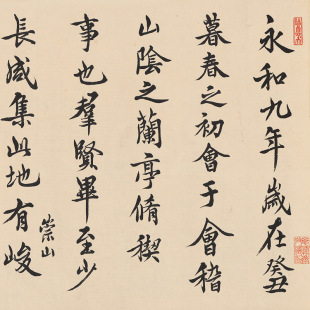 永和九年歲在癸丑
暮春之初會于會稽
山陰之蘭亭脩稧
事也羣賢畢至少
長咸集此地有崇山峻